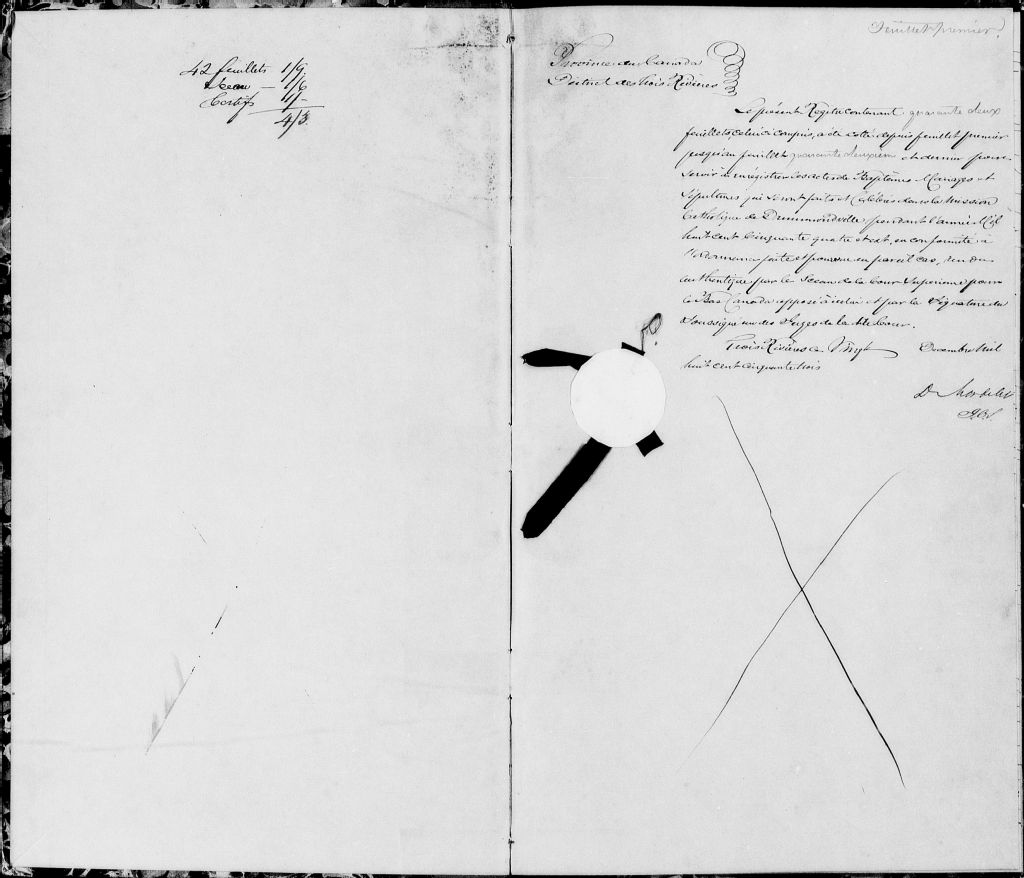 42 feuillets 1/9
Sceau — 1/6
Certif. 1/-
4/3
Feuillet premier.
Province du Canada
District des trois Rivières
Le présent Registre contenant quarante deux
feuillets celui ci compris, a été cotté depuis feuillet premier
jusqu'au feuillet quarante deuxieme et dernier pour
servir à enregistrer les actes de Baptêmes Mariages et
Sépultures qui seront faits et Célébrés dans la Mission
Catholique de Drummondville pendant l'année Mil
huit cent Cinquante quatre et est, en conformité à
l'ordonnance faite et pourvue en pareil cas, rendu
authentique par le Sceau de la Cour Supérieure pour
le Bas Canada apposé à icelui et par la Signature du
Soussigné un des Juges de la dite Cour.
Trois Rivières ce Vingt Decembre Mil
huit cent cinquante trois
D. Mondelet
J.C.S.